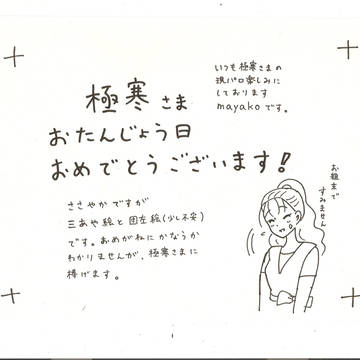 極寒さま
おたんじょう日
おめでとうございます!
いつも極寒さまの
現パロ楽しみに
しております
mayakoです。
ささやかですが
三あや絵と団左絵(少し不安)
です。おめがねにかなうか
わかりませんが、極寒さまに
捧げます。
お粗末で
すみません